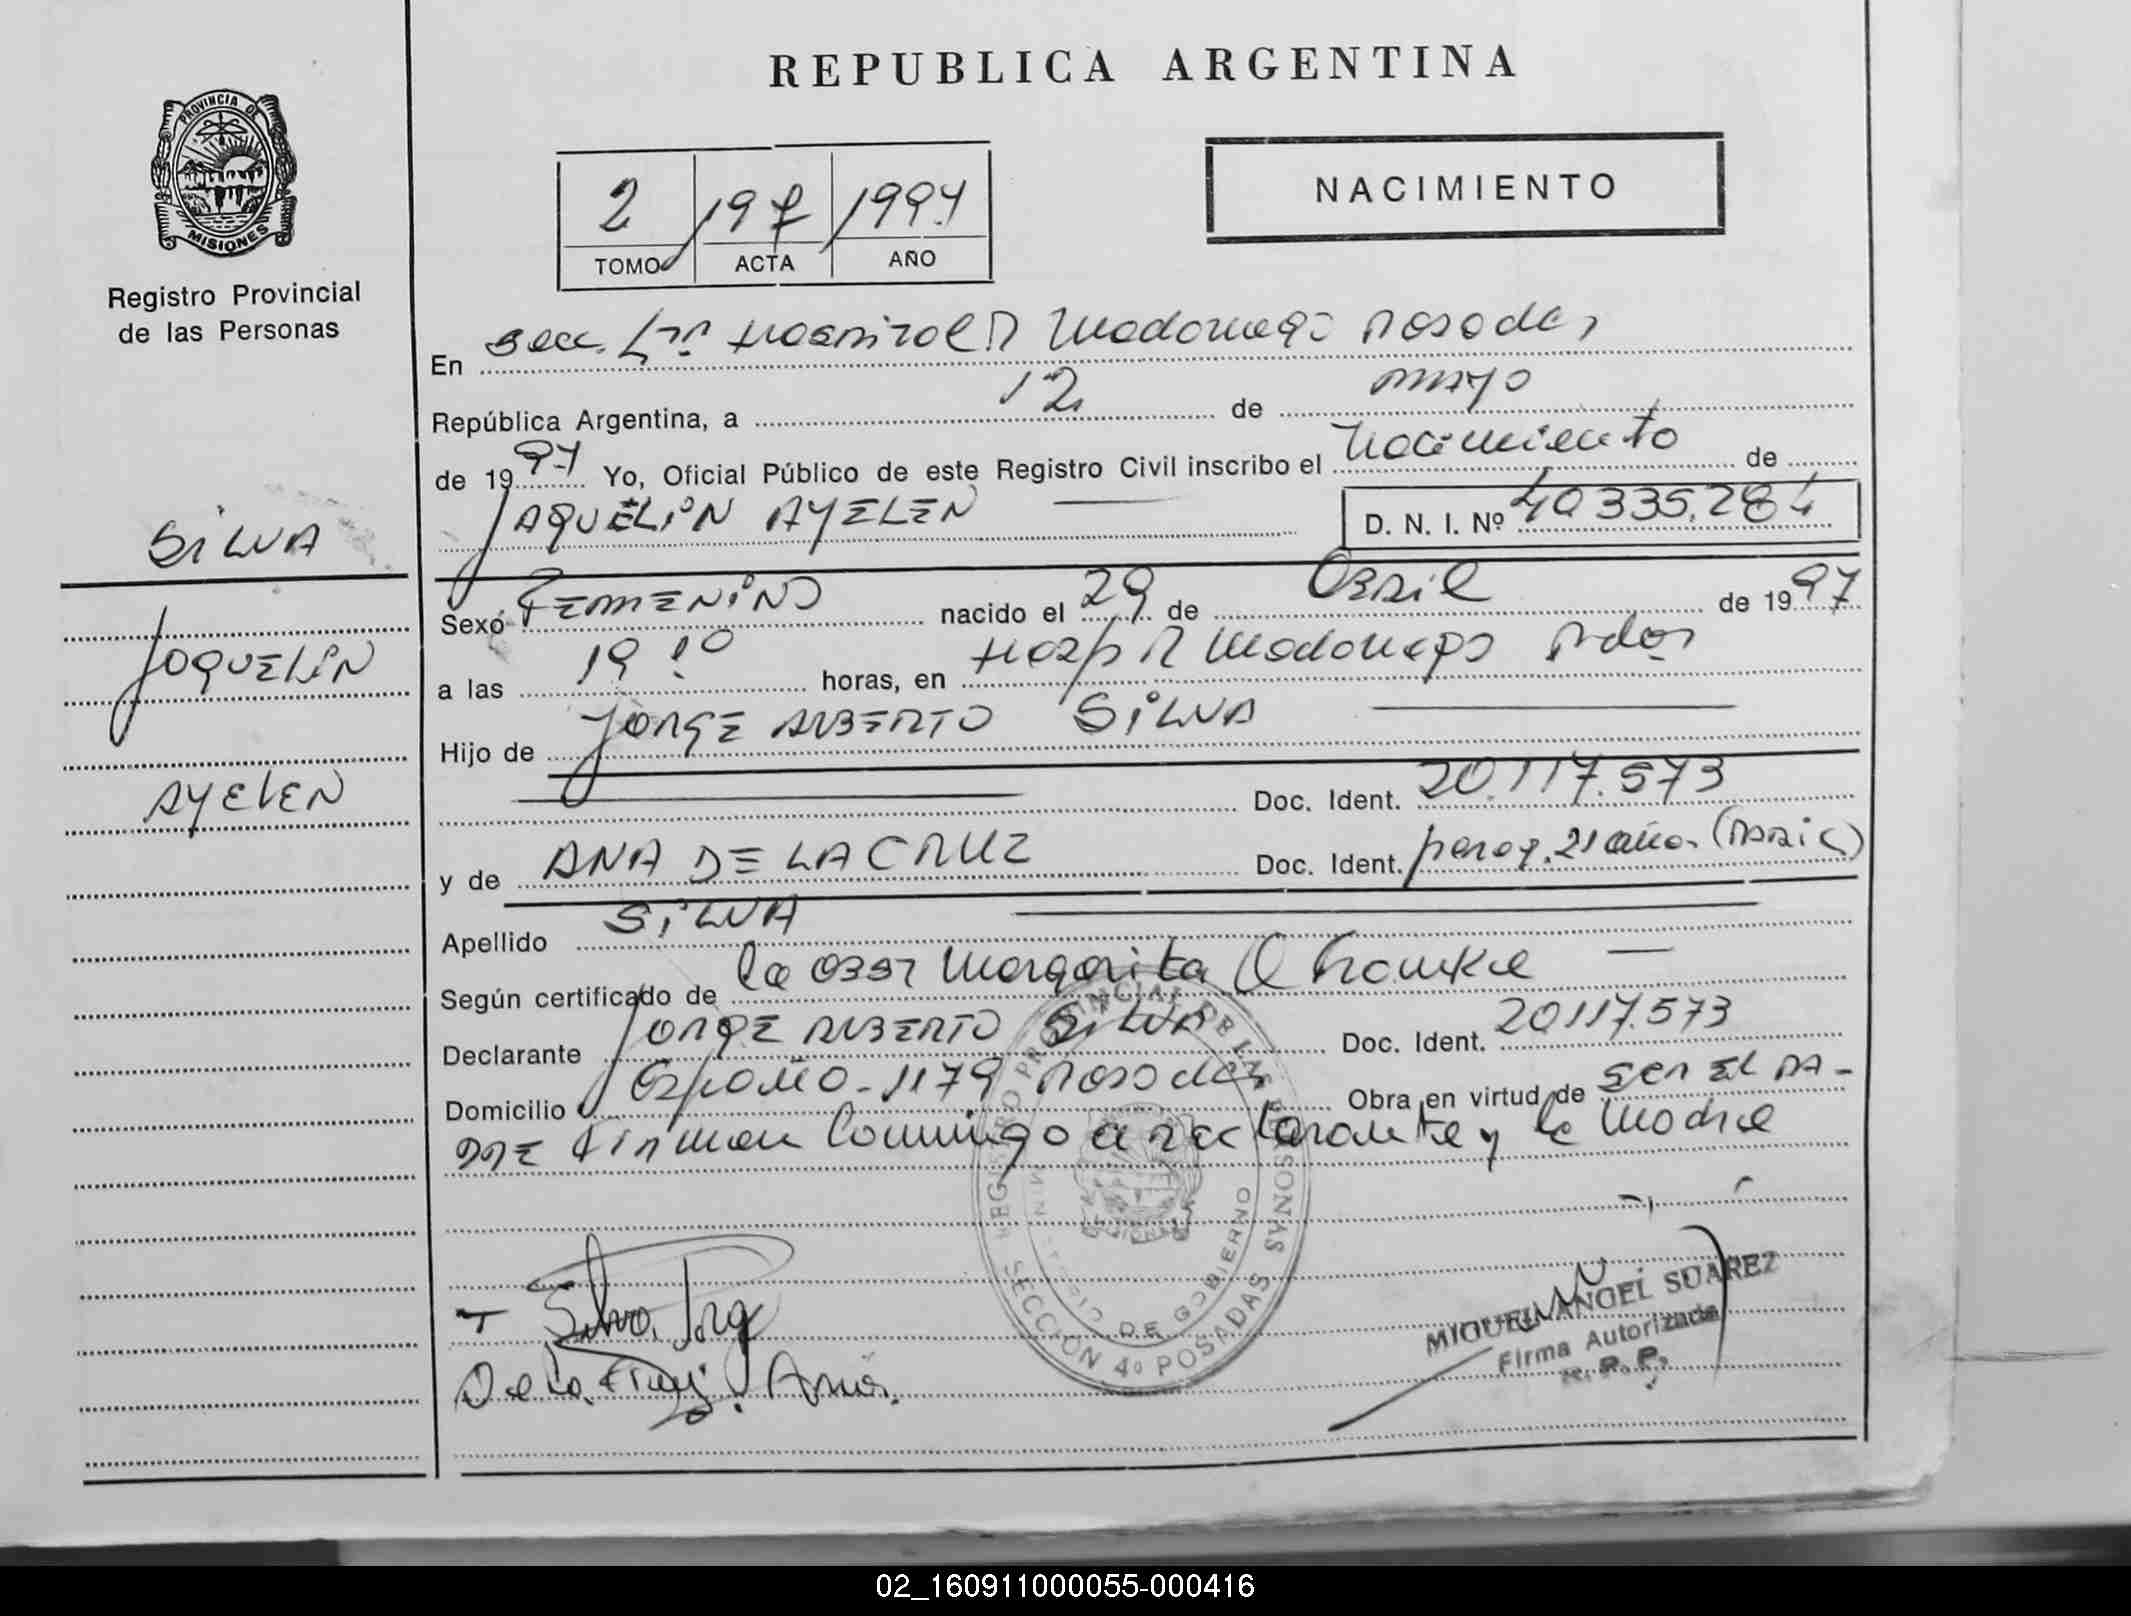 REPUBLICA ARGENTINA
PROVINCIA DE
MISIONES
Registro Provincial
de las Personas
2 197 1997
TOMO ACTA AÑO
NACIMIENTO
En Secc. 4ta Hospital R Madariaga Posadas
República Argentina, a 12 de mayo
de 1997 Yo, Oficial Público de este Registro Civil inscribo el Nacimiento de
JAQUELIN AYELEN D. N. I. Nº 40335.284
SILVA
JAQUELIN
AYELEN
Sexo FEMENINO nacido el 29 de Abril de 1997
a las 19 10 horas, en Hosp R Madariaga Pdas
Hijo de JORGE ALBERTO SILVA
Doc. Ident. 20.117.573
y de ANA DE LA CRUZ Doc. Ident. parag. 21 años
Apellido SILVA
Según certificado de la Obst Margarita
Declarante JORGE ALBERTO SILVA Doc. Ident. 20117.573
Domicilio España 1179 Posadas Obra en virtud de SER EL PA-
DRE Firman Conmigo el declarante y la Madre
REGISTRO PROVINCIAL DE LAS PERSONAS
MINISTERIO DE GOBIERNO
SECCION 4º POSADAS
Silva Jorge
De la Cruz Ana
MIGUEL ANGEL SUAREZ
Firma Autorizada
R. P. P.
02_160911000055-000416